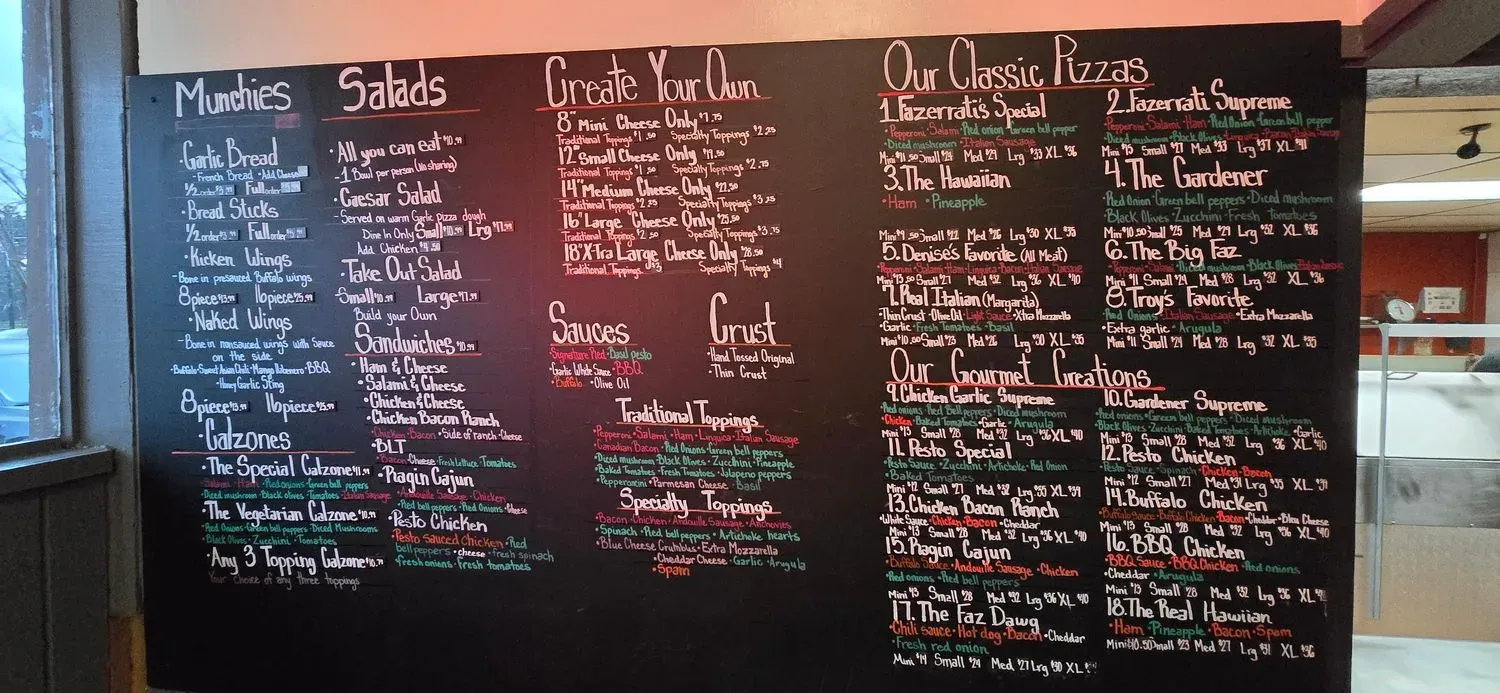 Munchies
·Garlic Bread
-French Bread ·Add Cheese
1/2 order Full order
·Bread Sticks
1/2 order Full order
·Kicken Wings
-Bone in presauced Buffalo wings
8piece 16piece $25.99
·Naked Wings
-Bone in nonsauced wings with sauce
on the side
·Buffalo·Sweet Asian Chili·Mango Habenero·BBQ
·Honey Garlic Sting
8piece 16piece $25.99
·Calzones
·The Special Calzone $11.99
·Salami·Ham·Red onions·Green bell peppers
·Diced mushroom·Black olives·Tomatoes·Italian Sausage
·The Vegetarian Calzone $10.99
·Red Onions·Green bell peppers·Diced Mushrooms
·Black Olives·Zucchini·Tomatoes
·Any 3 Topping Calzone $10.79
Your choice of any three toppings
Salads
·All you can eat $10.99
-1 Bowl per person (No sharing)
·Caesar Salad
-Served on warm Garlic Pizza dough
Dine In Only Small $10.99 Lrg $17.99
Add Chicken
·Take Out Salad
-Small $10.99 Large $17.99
Build your Own
Sandwiches $10.99
·Ham & Cheese
·Salami & Cheese
·Chicken & Cheese
·Chicken Bacon Ranch
·Chicken·Bacon·Side of ranch·Cheese
·BLT
·Bacon·Cheese·Fresh Lettuce·Tomatoes
·Ragin Cajun
·Andouille Sausage·Chicken
·Red bell peppers·Red Onions·Cheese
·Pesto Chicken
·Pesto sauced Chicken·Red
bell peppers·cheese·fresh spinach
·fresh onions·Fresh tomatoes
Create Your Own
8" Mini Cheese Only $7.75
Traditional Toppings $1.50 Specialty Toppings $2.25
12" Small Cheese Only
Traditional Toppings Specialty Toppings $2.75
14" Medium Cheese Only $22.50
Traditional Toppings $2.25 Specialty Toppings $3.25
16" Large Cheese Only $25.50
Traditional Toppings $2.50 Specialty Toppings $3.75
18" X-tra Large Cheese Only $28.50
Traditional Toppings $3 Specialty Toppings $4
Sauces
·Signature Red·Basil pesto
·Garlic White Sauce·BBQ
·Buffalo·Olive Oil
Crust
·Hand Tossed Original
·Thin Crust
Traditional Toppings
·Pepperoni·Salami·Ham·Linguica·Italian Sausage
·Canadian Bacon·Red Onions·Green bell peppers
·Diced mushroom·Black Olives·Zucchini·Pineapple
·Baked Tomatoes·Fresh Tomatoes·Jalapeno peppers
·Pepperoncini·Parmesan Cheese·Basil
Specialty Toppings
·Bacon·Chicken·Andouille Sausage·Anchovies
·Spinach·Red bell peppers·Artichoke hearts
·Blue Cheese Crumbles·Extra Mozzarella
·Cheddar Cheese·Garlic·Arugula
·Spam
Our Classic Pizzas
1.Fazerrati's Special
·Pepperoni·Salami·Red onion·Green bell pepper
·Diced mushroom·Italian Sausage
Mini $11.50 Small $24 Med $29 Lrg $33 XL $36
2.Fazerrati Supreme
·Pepperoni·Salami·Ham·Red Onion·Green bell pepper
·Diced mushroom·Black Olives·Linguica·Bacon·Italian Sausage
Mini $15 Small $27 Med $33 Lrg $37 XL $41
3.The Hawaiian
·Ham ·Pineapple
Mini $9.50 Small $22 Med $26 Lrg $30 XL $35
4. The Gardener
·Red Onion·Green bell peppers·Diced mushroom
·Black Olives·Zucchini·Fresh tomatoes
Mini $10.50 Small $25 Med $29 Lrg $32 XL $36
5. Denise's Favorite (All Meat)
·Pepperoni·Salami·Ham·Linguica·Bacon·Italian Sausage
Mini $13.50 Small $27 Med $32 Lrg $36 XL $40
6. The Big Faz
·Pepperoni·Salami·Diced mushroom·Black Olives·Italian Sausage
Mini $11 Small $24 Med $28 Lrg $32 XL $36
7. Real Italian (Margarita)
·Thin Crust·Olive Oil·Light Sauce·Xtra Mozzarella
·Garlic·Fresh Tomatoes·Basil
Mini $10.50 Small $23 Med $26 Lrg $30 XL $35
8. Troy's Favorite
·Red Onions·Italian Sausage·Extra Mozzarella
·Extra garlic·Arugula
Mini $11 Small $24 Med $28 Lrg $32 XL $35
Our Gourmet Creations
9.Chicken Garlic Supreme
·Red onions·Red Bell peppers·Diced mushroom
·Chicken·Baked Tomatoes·Garlic·Arugula
Mini $13 Small $28 Med $32 Lrg $36 XL $40
10. Gardener Supreme
·Red onions·Green bell peppers·Diced mushroom
·Black Olives·Zucchini·Baked Tomatoes·Artichoke·Garlic
Mini $13 Small $28 Med $32 Lrg $36 XL $40
11. Pesto Special
·Pesto Sauce·Zucchini·Artichoke·Red Onion
·Baked Tomatoes
Mini $12 Small $27 Med $32 Lrg $35 XL $39
12. Pesto Chicken
·Pesto Sauce·Spinach·Chicken·Bacon
Mini $12 Small $27 Med $31 Lrg $35 XL $39
13. Chicken Bacon Ranch
·White Sauce·Chicken·Bacon·Cheddar
Mini $13 Small $28 Med $32 Lrg $36 XL $40
14. Buffalo Chicken
·Buffalo Sauce·Buffalo Chicken·Bacon·Cheddar·Bleu Cheese
Mini $13 Small $28 Med $32 Lrg $36 XL $40
15. Ragin Cajun
·Buffalo Sauce·Andouille Sausage·Chicken
·Red onions·Red bell peppers
Mini $13 Small $28 Med $32 Lrg $36 XL $40
16. BBQ Chicken
·BBQ Sauce·BBQ Chicken·Red onions
·Cheddar·Arugula
Mini $13 Small $28 Med $32 Lrg $36 XL
17. The Faz Dawg
·Chili sauce·Hot dog·Bacon·Cheddar
·Fresh red onion
Mini $11 Small $24 Med $27 Lrg $30 XL
18.The Real Hawiian
·Ham·Pineapple·Bacon·Spam
Mini $10.50 Small $23 Med $27 Lrg $31 XL $36